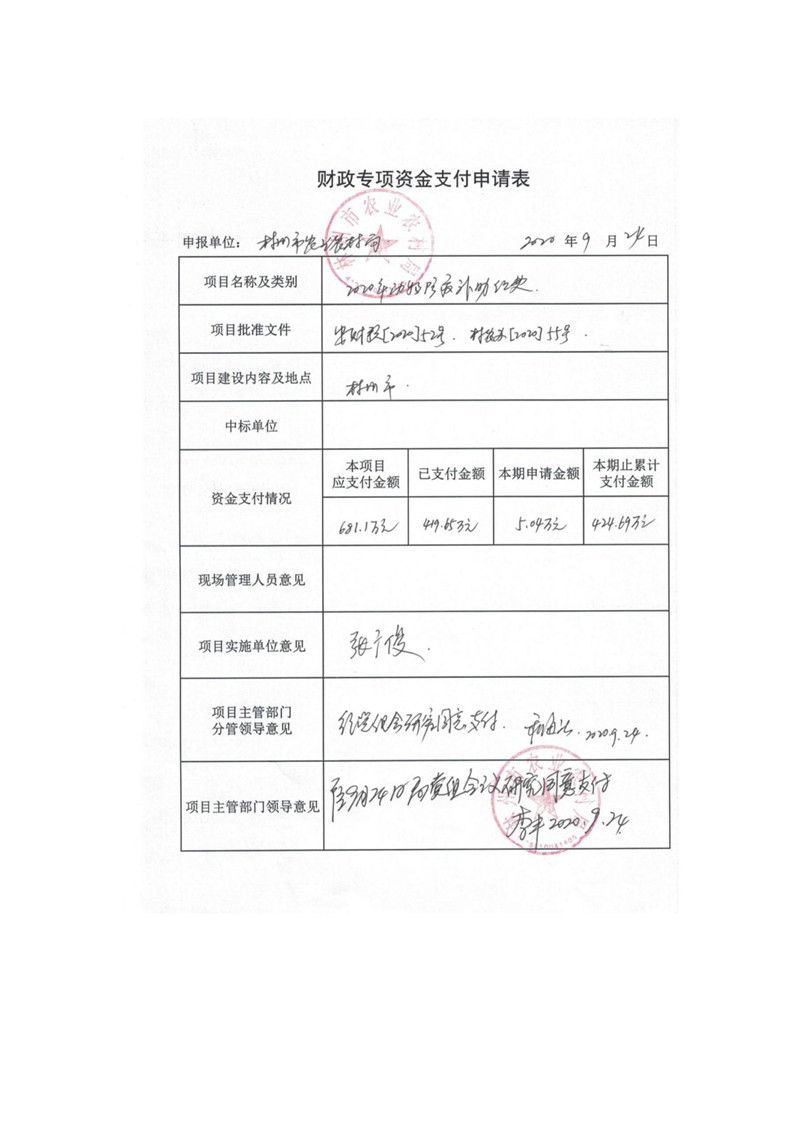 财政专项资金支付申请表
申报单位： 林州市农业农村局 2020 年 9 月 24 日
项目名称及类别 2020年动物防疫补助经费.
项目批准文件 安财预[2020]52号. 林政办[2020]55号.
项目建设内容及地点 林州市.
中标单位
资金支付情况
本项目 应支付金额 已支付金额 本期申请金额 本期止累计 支付金额
681.1万元 419.65万元 5.04万元 424.69万元
现场管理人员意见
项目实施单位意见 张广俊.
项目主管部门
分管领导意见
经党组会研究同意支付. 2020.9.24.
项目主管部门领导意见
9月24日局党组会议研究同意支付
李丰 2020.9.24
林州市农业农村局
林州市农业农村局